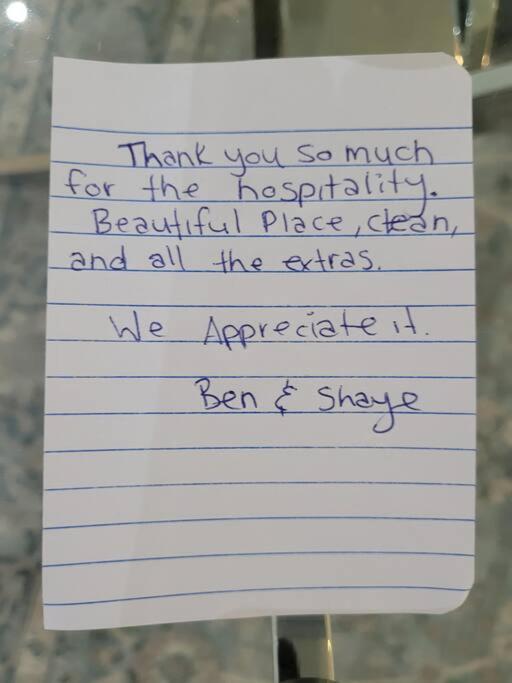 Thank you so much
for the hospitality.
Beautiful Place, clean,
and all the extras.
We Appreciate it.
Ben & Shaye